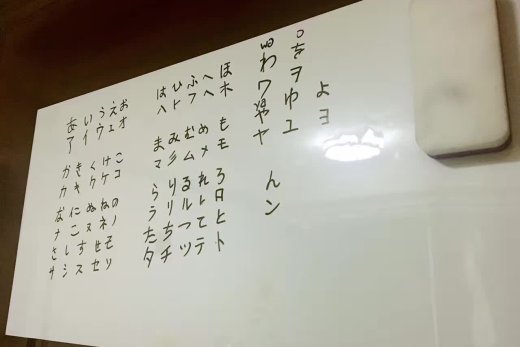 あア かカ なナ さサ
いイ きキ にこ しシ
うウ くク ぬヌ すス
えエ けケ ねネ せセ
おオ こコ のノ そソ
はハ まマ らラ たタ
ひト みミ りリ ちチ
ふフ むム るル つツ
へヘ めメ れレ てテ
ほホ もモ ろロ とト
わワ やヤ んン
o をヲ ゆユ
よヨ